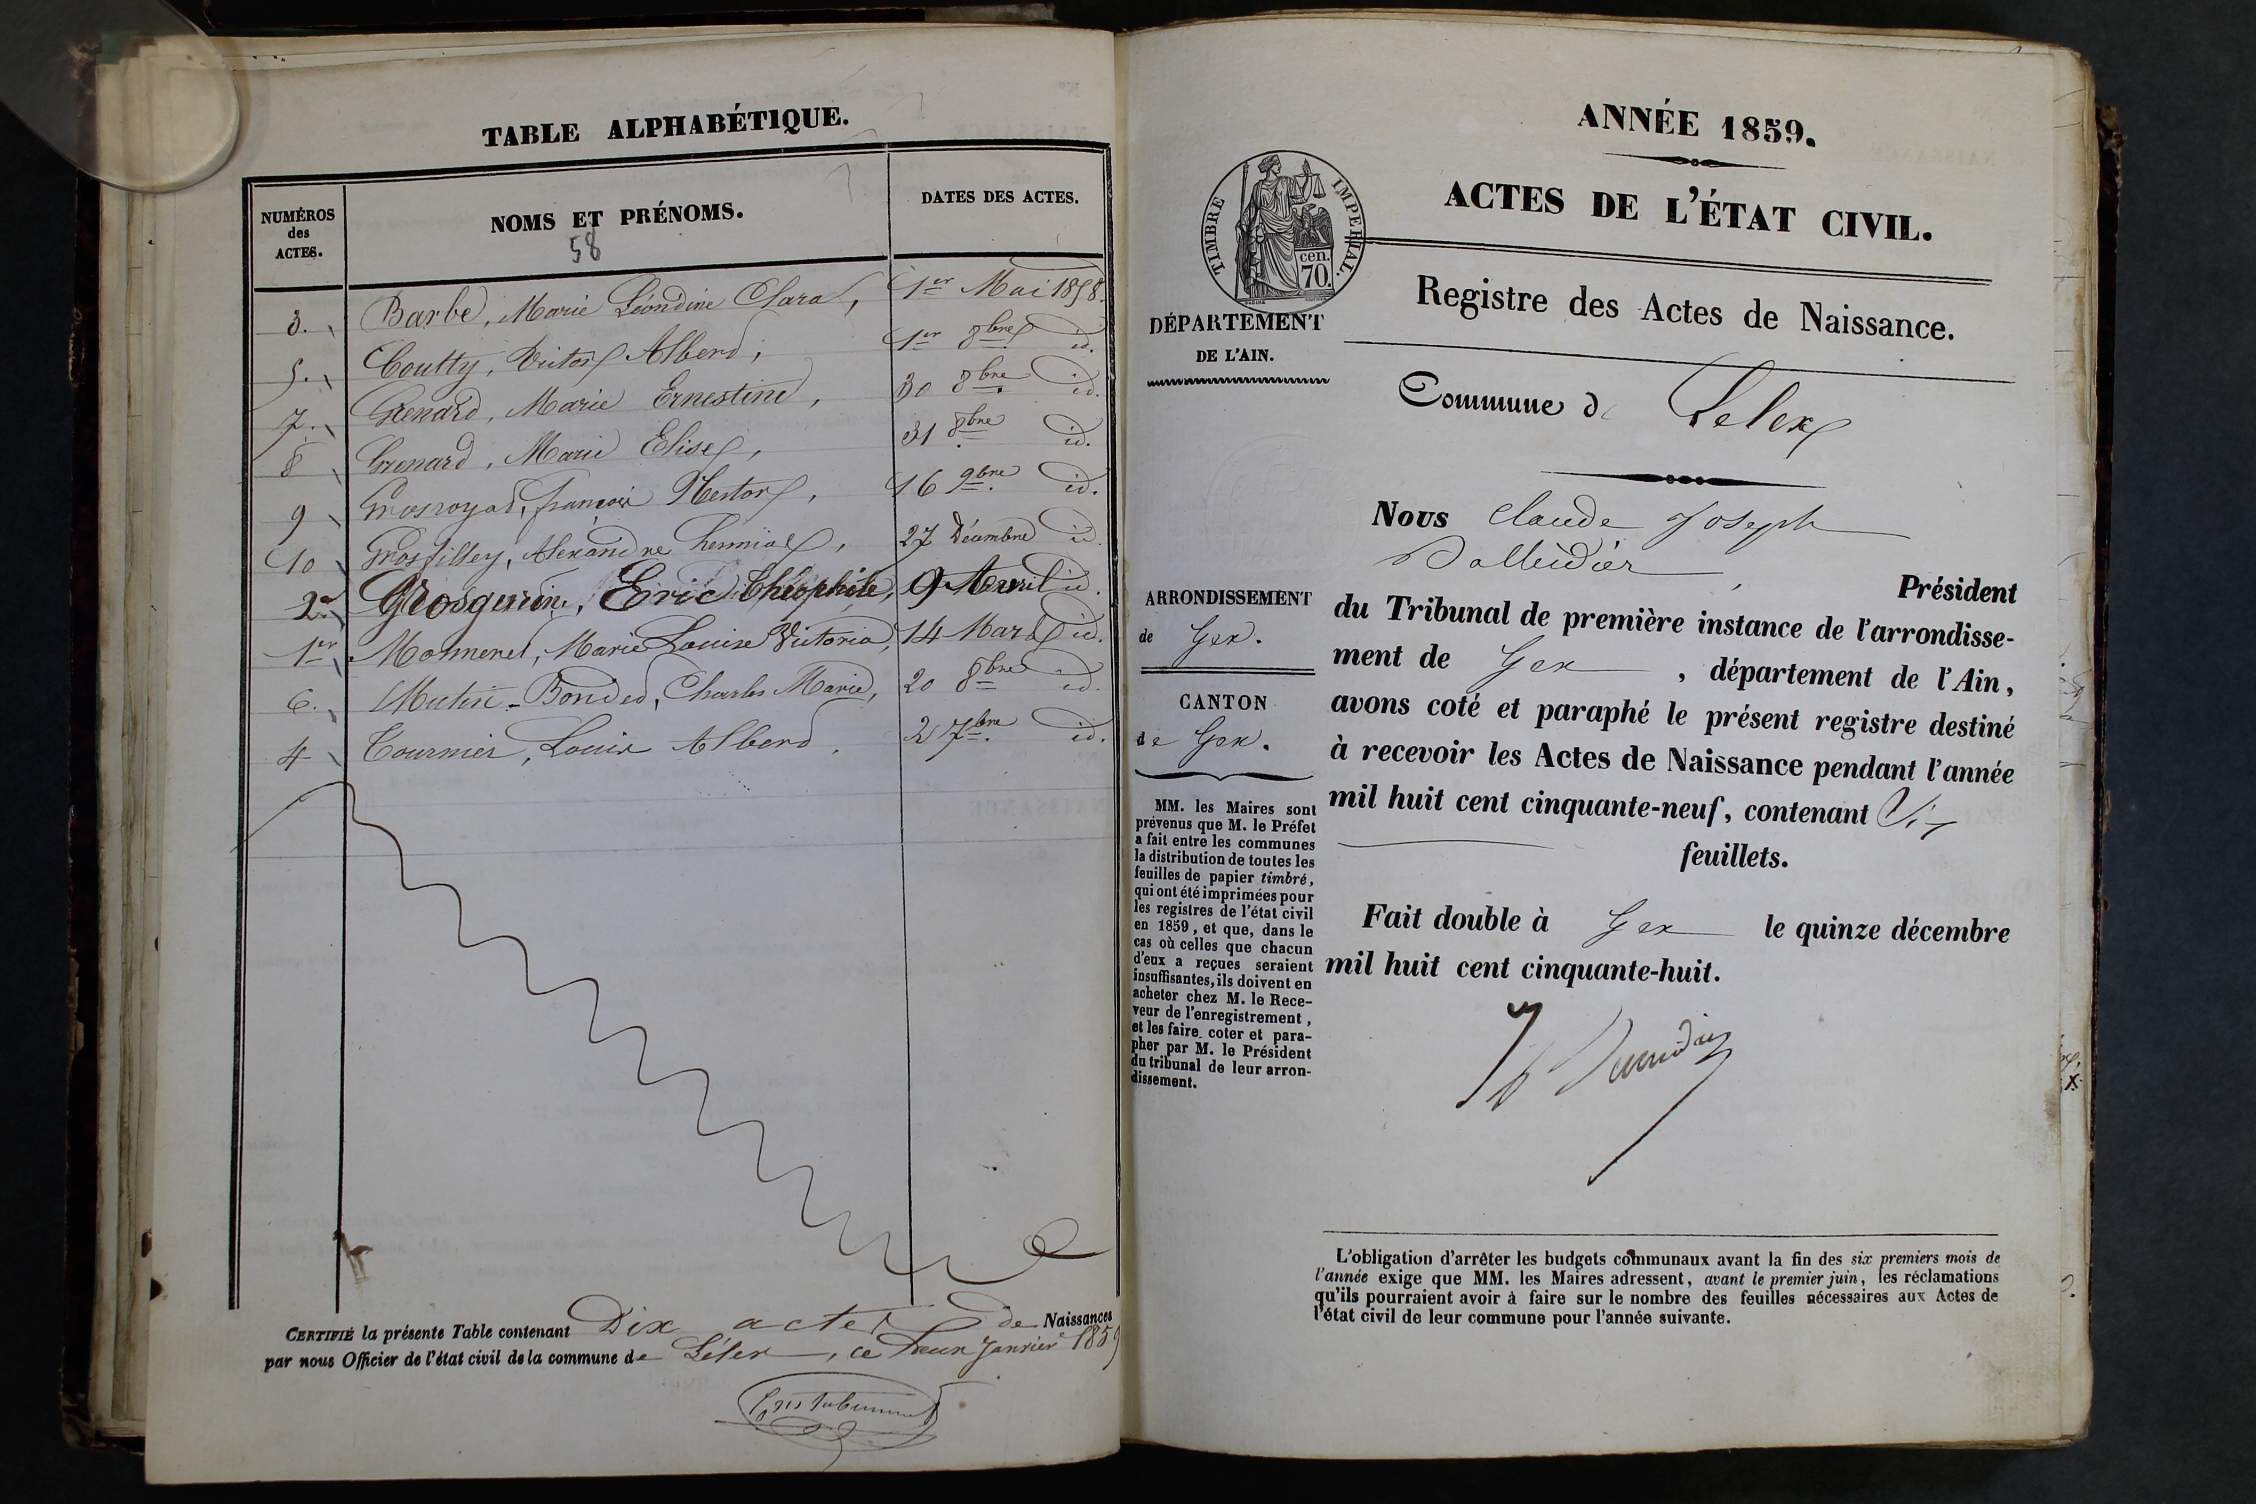 TABLE ALPHABÉTIQUE.
NUMÉROS des ACTES.
NOMS ET PRÉNOMS.
DATES DES ACTES.
58
3. Barbe, Marie Léondine Clara, 1er Mai 1858.
5. Coutty, Victor Albert, 1er 8bre id.
7. Grenard, Marie Ernestine, 30 8bre id.
8 Grenard, Marie Elise, 31 8bre id.
9 Grosroyat, françois Nestor, 16 9bre id.
10 Grosfilley, Alexandre 27 Décembre id.
2e Grosgurin, Eric Théophile, 9 Avril id.
1er Monneret, Marie Louise Victoria, 14 Mars id.
6. Mutin-Bondet, Charles Marie, 20 8bre id.
4 Tournier, Louis Albert. 2 7bre id.
CERTIFIÉ la présente Table contenant Dix actes de Naissances
par nous Officier de l'état civil de la commune de Lélex, ce deux Janvier 1859
ANNÉE 1859.
ACTES DE L'ÉTAT CIVIL.
TIMBRE IMPÉRIAL.
cen.
70.
Registre des Actes de Naissance.
DÉPARTEMENT
DE L'AIN.
Commune de Lelex
Nous Claude Joseph
Président
du Tribunal de première instance de l'arrondisse-
ment de Gex, département de l'Ain,
avons coté et paraphé le présent registre destiné
à recevoir les Actes de Naissance pendant l'année
mil huit cent cinquante-neuf, contenant Six
feuillets.
Fait double à Gex le quinze décembre
mil huit cent cinquante-huit.
ARRONDISSEMENT
de Gex.
CANTON
de Gex.
MM. les Maires sont
prévenus que M. le Préfet
a fait entre les communes
la distribution de toutes les
feuilles de papier timbré,
qui ont été imprimées pour
les registres de l'état civil
en 1859, et que, dans le
cas où celles que chacun
d'eux a reçues seraient
insuffisantes, ils doivent en
acheter chez M. le Rece-
veur de l'enregistrement,
et les faire coter et para-
pher par M. le Président
du tribunal de leur arron-
dissement.
L'obligation d'arrêter les budgets communaux avant la fin des six premiers mois de
l'année exige que MM. les Maires adressent, avant le premier juin, les réclamations
qu'ils pourraient avoir à faire sur le nombre des feuilles nécessaires aux Actes de
l'état civil de leur commune pour l'année suivante.